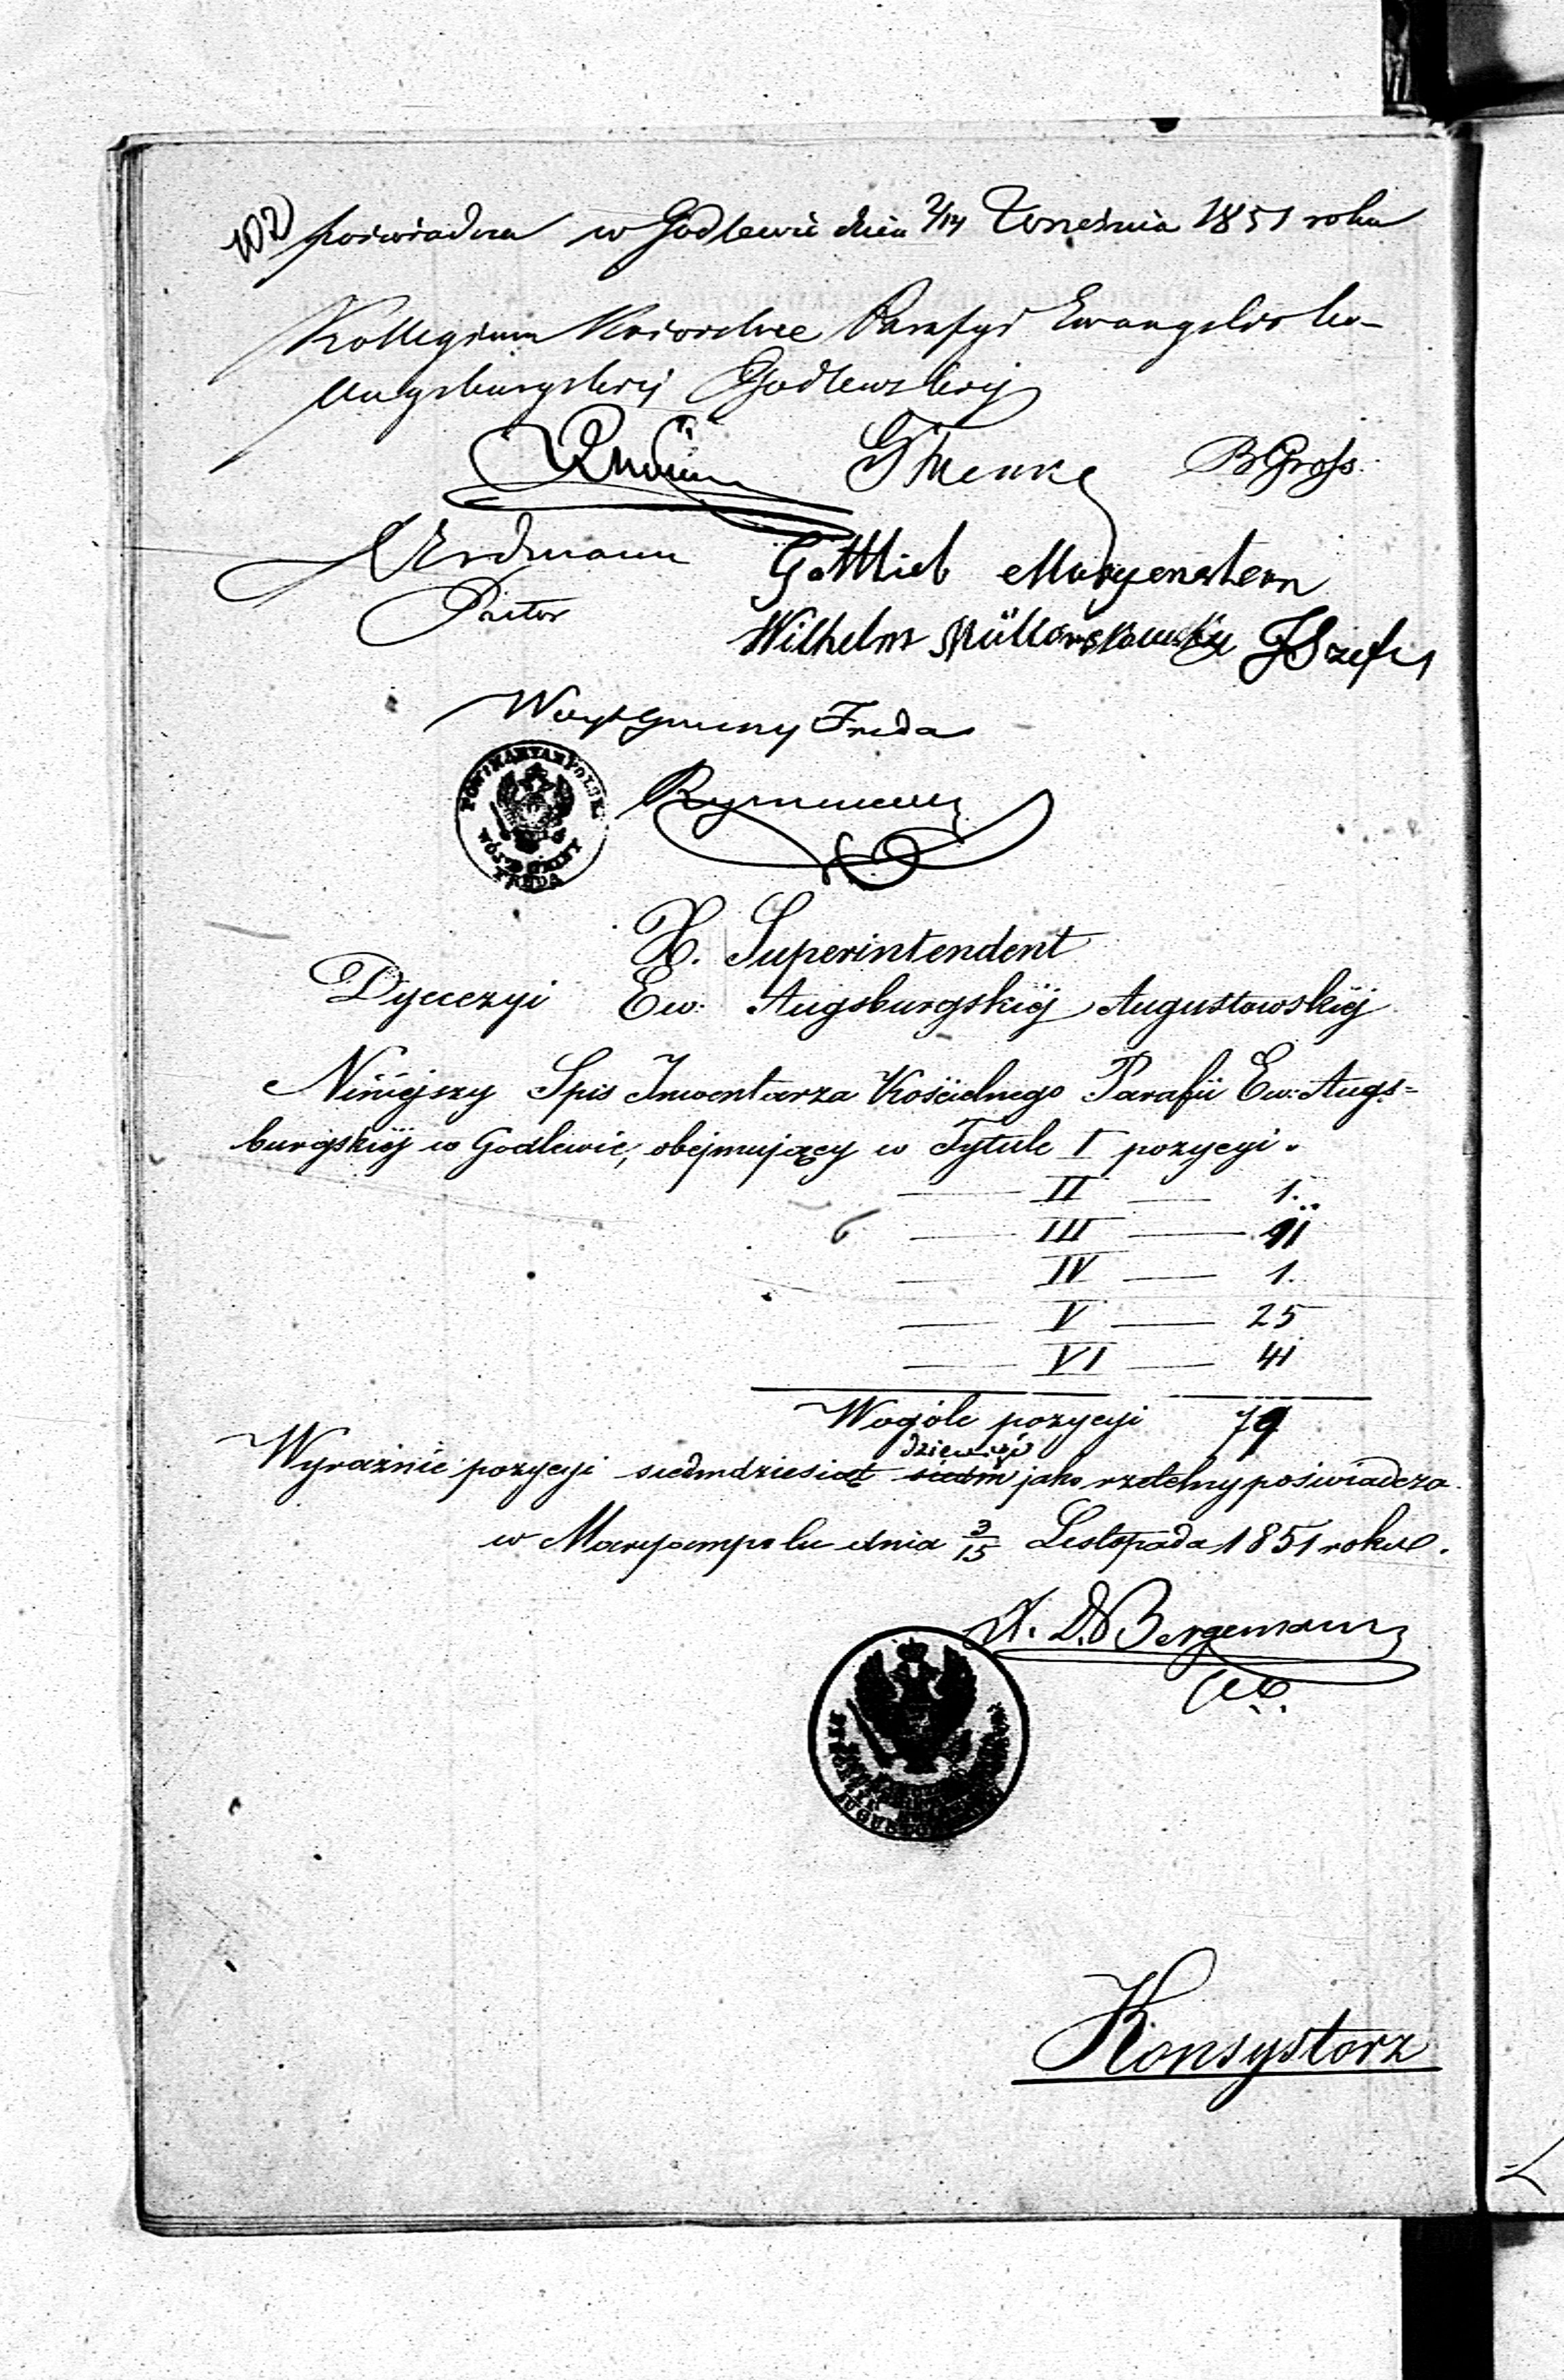 102
poświadcza w Godlewie dnia 2/14 Września 1851 roku
Kollegium Kościelne Parafyi Ewangelicko-
Augsburgskiej Godlewskiej
BGross
Erdmann
Pastor
Gottlieb Morgenstern
Wilhelm
Woyt Gminy Freda
WÓYT GMINY
FREDA
X. Superintendent
Dyecezyi Ew: Augsburgskiéj Augustowskiéj
Niniéjszy Spis Inwentarza Kościelnego Parafii Ew: Augs=
burgskiéj w Godlewie, obejmujący w Tytule I pozycyi „
— II — 1.
— III — 11
— IV — 1.
— V — 25
— VI — 41
Wogóle pozycyi 79
dziewięć
Wyraźnie pozycyi siedmdziesiąt siedm jako rzetelny poświadcza
w Maryampolu dnia 3/15 Listopada 1851 roku.
X. D. Bergemann
Konsystorz